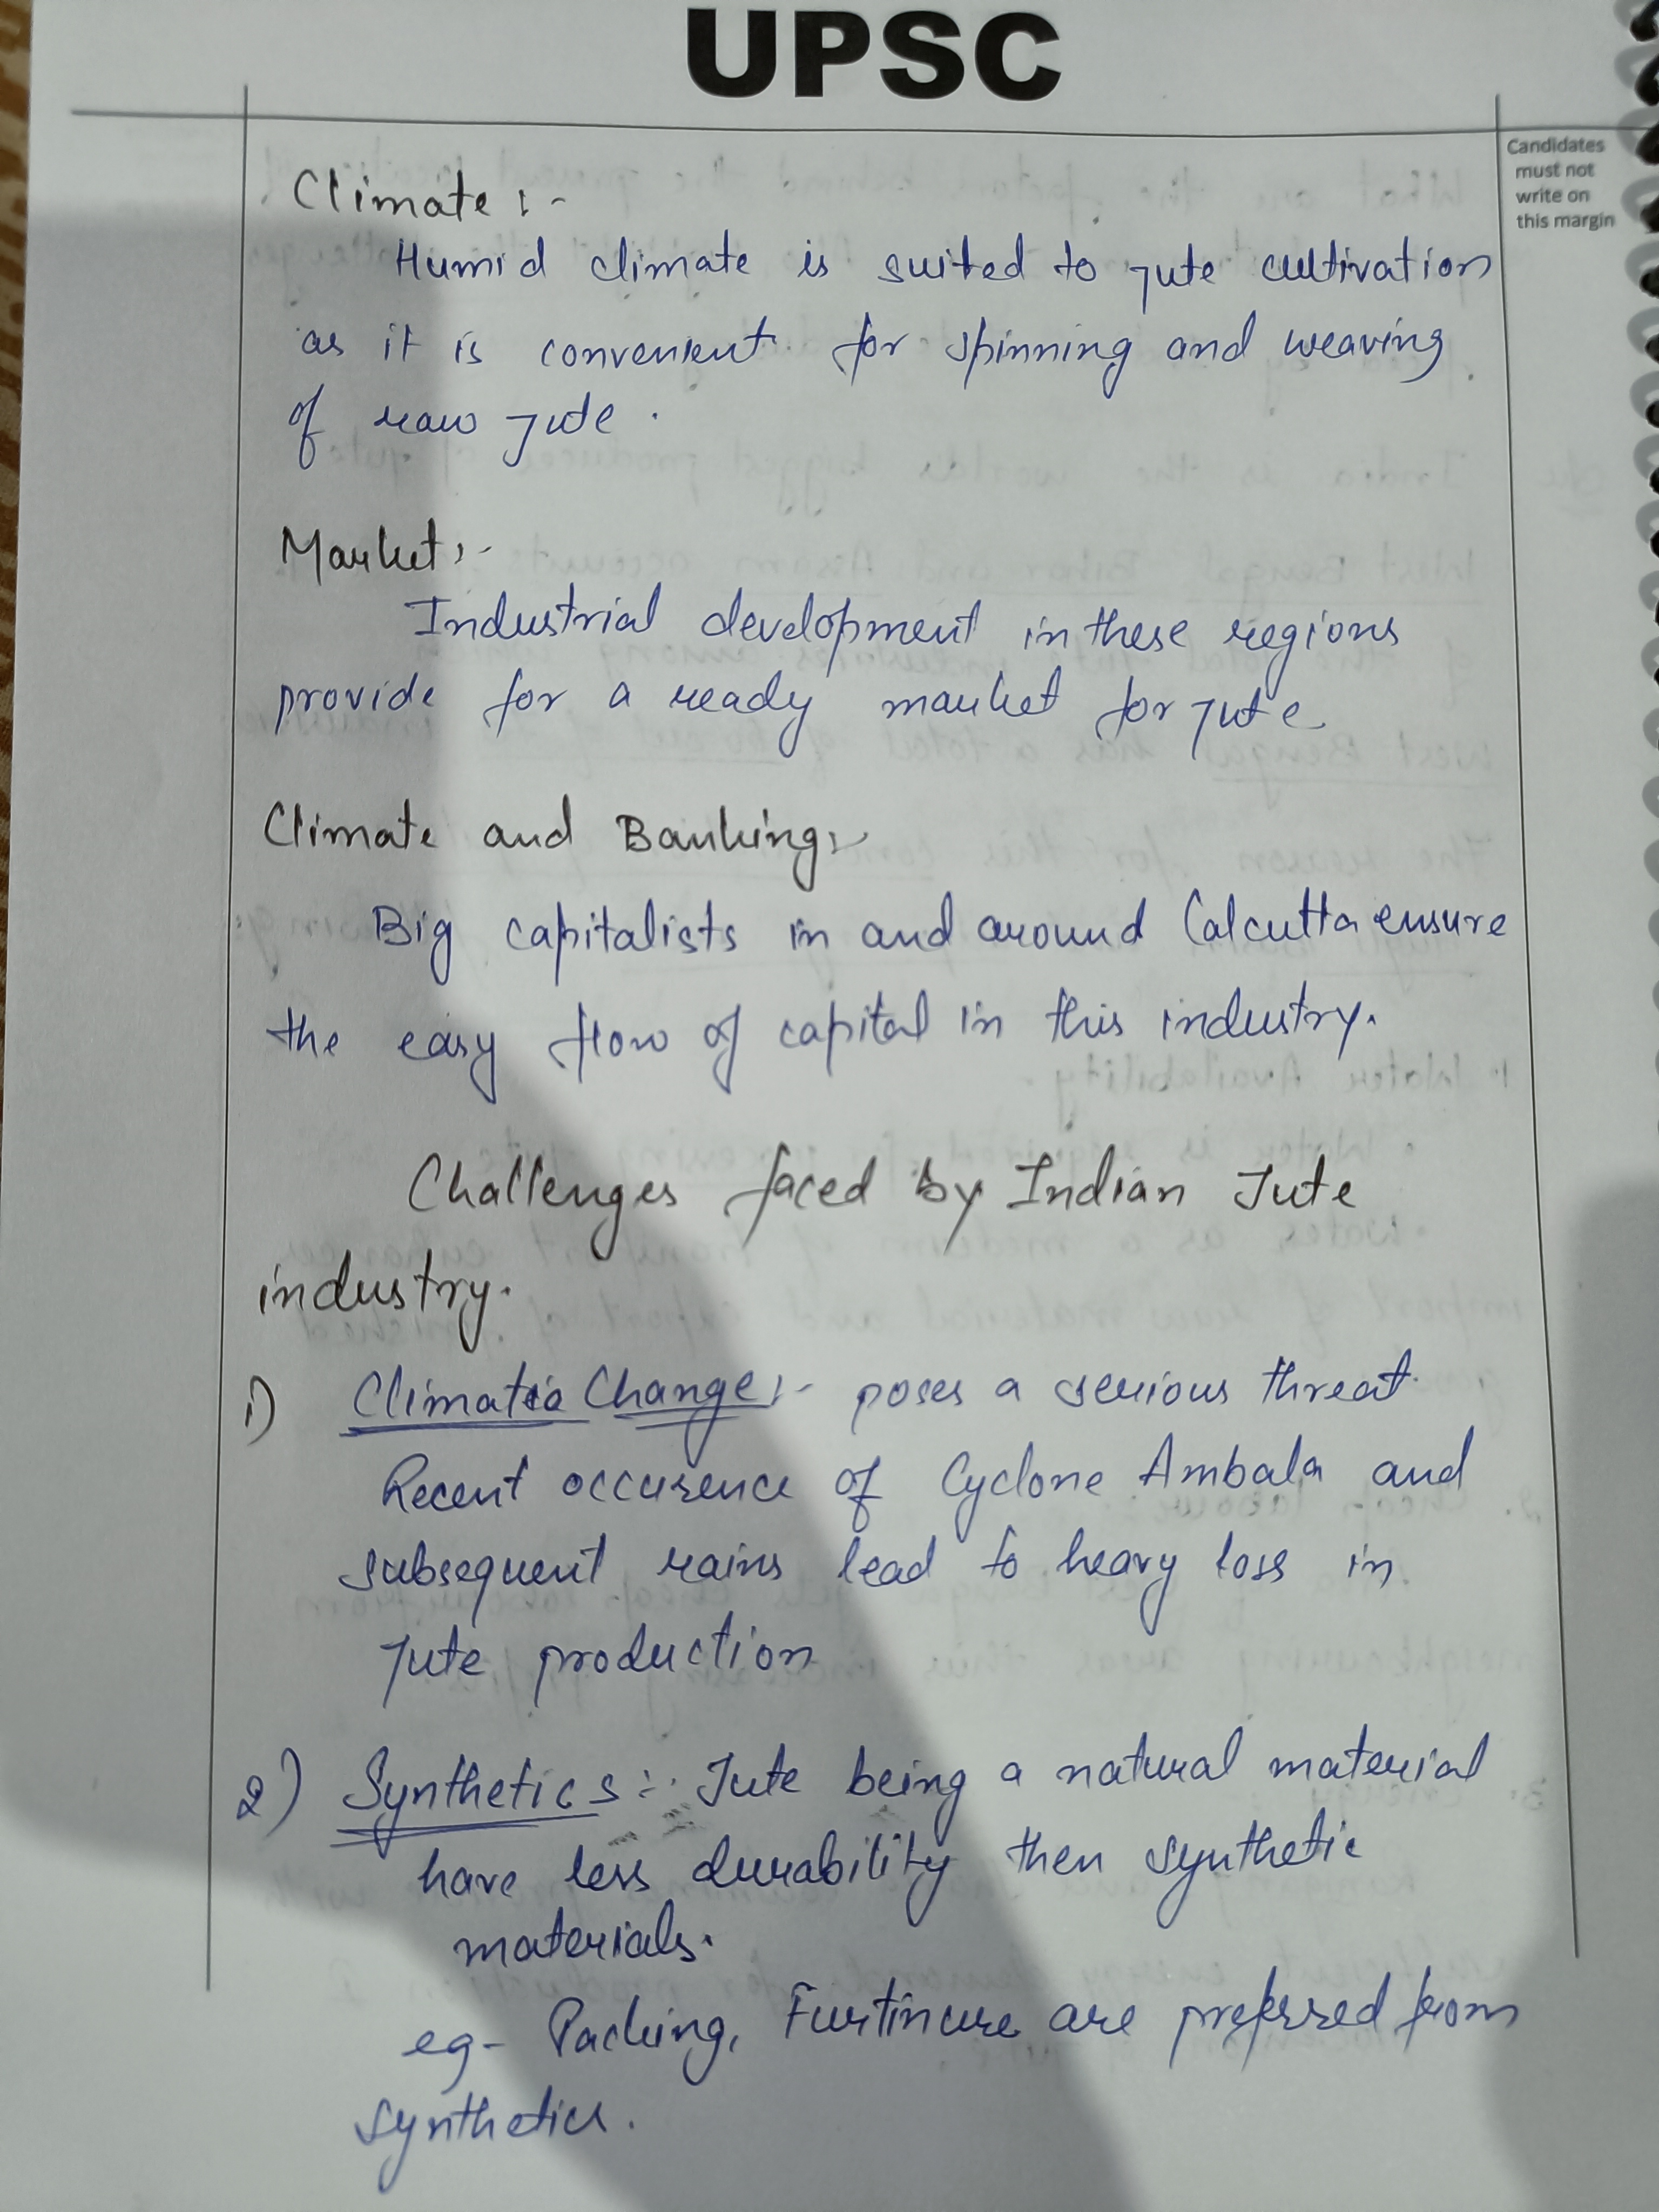 UPSC
Candidates
must not
write on
this margin
Climate :-
Humid climate is suited to jute cultivation
as it is convenient for spinning and weaving
of raw jute.
Market :-
Industrial development in these regions
provide for a ready market for jute
Climate and Banking :-
Big capitalists in and around Calcutta ensure
the easy flow of capital in this industry.
Challenges faced by Indian Jute
industry.
1) Climatic Change :- poses a serious threat.
Recent occurence of Cyclone Ambala and
subsequent rains lead to heavy loss in
jute production
2) Synthetics :- Jute being a natural material
have less durability then synthetic
materials.
eg- Packing, Furtinure are preferred from
synthetics.